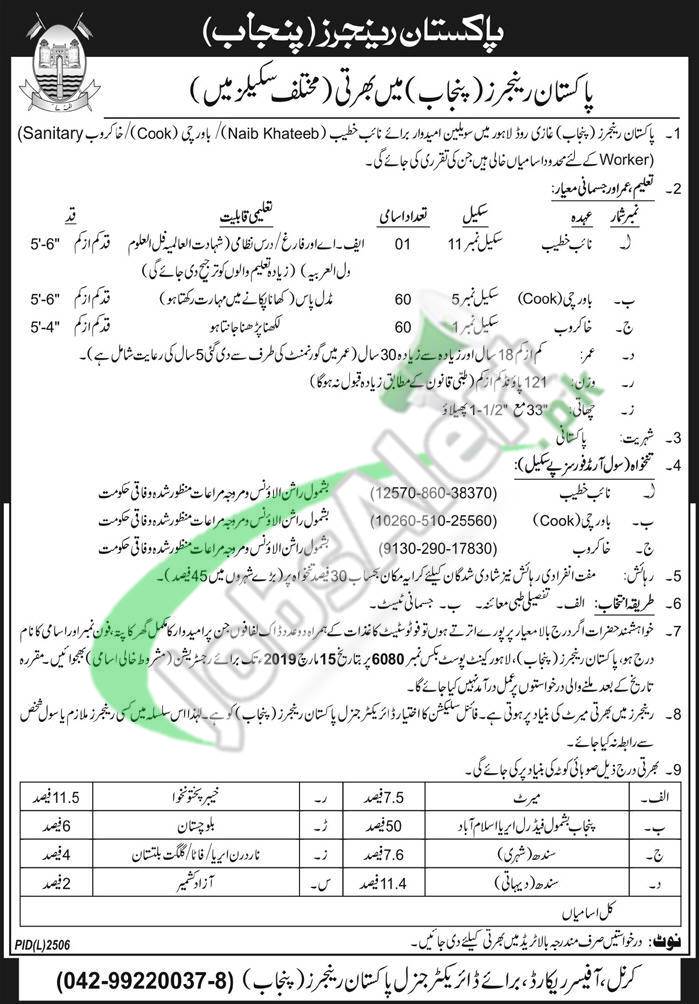 پاکستان رینجرز (پنجاب)
پاکستان رینجرز (پنجاب) میں بھرتی (مختلف سکیلز میں)
1۔ پاکستان رینجرز (پنجاب) غازی روڈ لاہور میں سویلین امیدوار برائے نائب خطیب (Naib Khateeb)/ باورچی (Cook)/ خاکروب (Sanitary
Worker) کے لئے محدود اسامیاں خالی ہیں جن کی تقرری کی جائے گی۔
2۔ تعلیم، عمر اور جسمانی معیار:
نمبر شمار عہدہ سکیل تعداد اسامی تعلیمی قابلیت قد
ا۔ نائب خطیب سکیل نمبر 11 01 ایف۔اے اور فارغ/ درس نظامی (شہادت العالمیہ فل العلوم قد کم از کم 5'-6"
ول العربیہ) (زیادہ تعلیم والوں کو ترجیح دی جائے گی)
ب۔ باورچی (Cook) سکیل نمبر 5 60 مڈل پاس (کھانا پکانے میں مہارت رکھتا ہو) قد کم از کم 5'-6"
ج۔ خاکروب سکیل نمبر 1 60 لکھنا پڑھنا جانتا ہو قد کم از کم 5'-4"
د۔ عمر: کم از کم 18 سال اور زیادہ سے زیادہ 30 سال (عمر میں گورنمنٹ کی طرف سے دی گئی 5 سال کی رعایت شامل ہے)۔
ر۔ وزن: 121 پاؤنڈ کم از کم (طبی قانون کے مطابق زیادہ قبول نہ ہوگا)
ز۔ چھاتی: 33" مع 1-1/2" پھیلاؤ
3۔ شہریت: پاکستانی
4۔ تنخواہ (سول آرمڈ فورسز پے سکیل):
ا۔ نائب خطیب (12570-860-38370) بشمول راشن الاؤنس و مروجہ مراعات منظور شدہ وفاقی حکومت
ب۔ باورچی (Cook) (10260-510-25560) بشمول راشن الاؤنس و مروجہ مراعات منظور شدہ وفاقی حکومت
ج۔ خاکروب (9130-290-17830) بشمول راشن الاؤنس و مروجہ مراعات منظور شدہ وفاقی حکومت
5۔ رہائش: مفت انفرادی رہائش نیز شادی شدگان کیلئے کرایہ مکان بحساب 30 فیصد تنخواہ پر (بڑے شہروں میں 45 فیصد)۔
6۔ طریقہ انتخاب: الف۔ تفصیلی طبی معائنہ۔ ب۔ جسمانی ٹیسٹ۔
7۔ خواہشمند حضرات اگر درج بالا معیار پر پورے اترتے ہوں تو فوٹوسٹیٹ کاغذات کے ہمراہ دو عدد ڈاک لفافوں جن پر امیدوار کا مکمل گھر کا پتہ، فون نمبر اور اسامی کا نام
درج ہو، پاکستان رینجرز (پنجاب)، لاہور کینٹ پوسٹ بکس نمبر 6080 پر بتاریخ 15 مارچ 2019ء تک برائے رجسٹریشن (مشروط خالی اسامی) بھجوائیں۔ مقررہ
تاریخ کے بعد ملنے والی درخواستوں پر عمل درآمد نہیں کیا جائے گا۔
8۔ رینجرز میں بھرتی میرٹ کی بنیاد پر ہوتی ہے۔ فائنل سلیکشن کا اختیار ڈائریکٹر جنرل پاکستان رینجرز (پنجاب) کو ہے۔ لہٰذا اس سلسلہ میں کسی رینجرز ملازم یا سول شخص
سے رابطہ نہ کیا جائے۔
9۔ بھرتی درج ذیل صوبائی کوٹہ کی بنیاد پر کی جائے گی۔
الف۔ میرٹ 7.5 فیصد ر۔ خیبر پختونخوا 11.5 فیصد
ب۔ پنجاب بشمول فیڈرل ایریا اسلام آباد 50 فیصد ڑ۔ بلوچستان 6 فیصد
ج۔ سندھ (شہری) 7.6 فیصد ز۔ ناردرن ایریا/ فاٹا/ گلگت بلتستان 4 فیصد
د۔ سندھ (دیہاتی) 11.4 فیصد س۔ آزاد کشمیر 2 فیصد
کل اسامیاں
نوٹ: درخواستیں صرف مندرجہ بالا ٹریڈ میں بھرتی کیلئے دی جائیں۔
PID(L)2506
کرنل، آفیسر ریکارڈ، برائے ڈائریکٹر جنرل پاکستان رینجرز (پنجاب) (042-99220037-8)
JobsAlert.pk